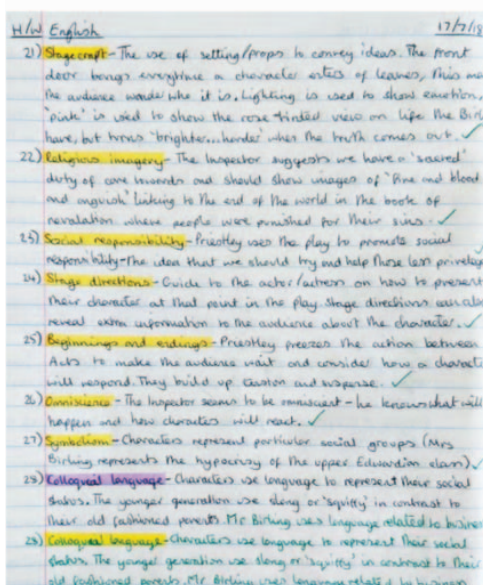 H/W English 17/7/18
21) Stagecraft - The use of setting/props to convey ideas. The front
door bangs everytime a character enters of leaves, this ma
the audience wonder who it is. Lighting is used to show emotion,
'pink' is used to show the rose-tinted view on life the Birl
have, but turns 'brighter...harder' when the truth comes out.
22) Religious imagery - The Inspector suggests we have a 'sacred'
duty of care towards and should show images of 'fire and blood
and anguish' linking to the end of the world in the book of
revalation where people were punished for their sins.
23) Social responsibility - Priestley uses the play to promote social
responsibility - the idea that we should try and help those less privelage
24) Stage directions - Guide to the actor/actress on how to present
their character at that point in the play. Stage directions can also
reveal extra information to the audience about the character.
25) Beginnings and endings - Priestley freezes the action between
Acts to make the audience wait and consider how a characte
will respond. They build up tension and suspense.
26) Omniscience - The Inspector seems to be omniscient - he knows what will
happen and how characters will react.
27) Symbolism - Characters represent particular social groups (Mrs
Birling represents the hypocrisy of the upper Edwardian class)
28) Colloqual language - Characters use language to represent their social
status. The younger generation use slang or 'squiffy' in contrast to
their old fashioned parents. Mr Birling uses language related to busines
28) Colloqual language - Characters use language to represent their social
status. The younger generation use slang or 'squiffy' in contrast to their
old fashioned parents. Mr Birling uses language related to business